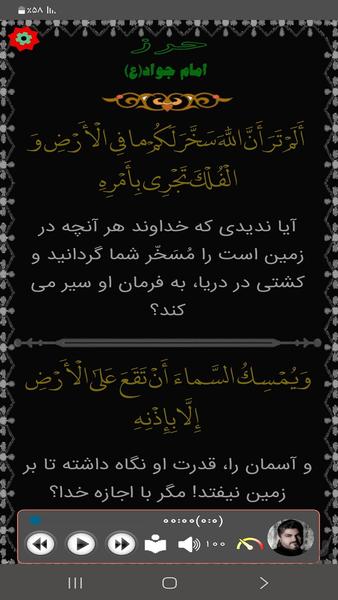 ٪۵۸
حرز
امام جواد(ع)
أَلَمْ تَرَ أَنَّ اللّٰهَ سَخَّرَ لَكُمْ ما فِی الْأَرْضِ وَ
الْفُلْكَ تَجْرِی بِأَمْرِهِ
آیا ندیدی که خداوند هر آنچه در
زمین است را مُسَخّر شما گردانید و
کشتی در دریا، به فرمان او سیر می
کند؟
وَ یُمْسِكُ السَّماءَ أَنْ تَقَعَ عَلَی الْأَرْضِ
إِلَّا بِإِذْنِهِ
و آسمان را، قدرت او نگاه داشته تا بر
زمین نیفتد! مگر با اجازه خدا؟
۰۰:۰۰(۰:۰)
۱۰۰